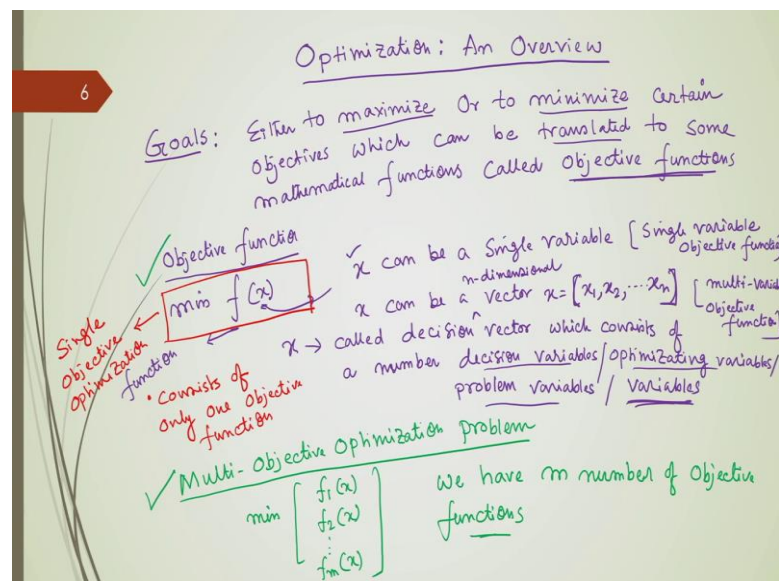 6
Optimization: An Overview
Goals: Either to maximize Or to minimize certain
objectives which can be translated to some
mathematical functions called Objective functions
Objective function
min f(x)
Single
Objective
Optimization
function
• Consists of
only one Objective
function
x can be a Single variable [Single variable
Objective function]
x can be a n-dimensional vector x=[x1, x2, ... xn] [multi-variable
Objective
function]
x → called decision vector which consists of
a number decision variables/optimizating variables/
problem variables / variables
Multi-Objective Optimization problem
min [f1(x)
f2(x)
⋮
fm(x)]
We have m number of Objective
functions